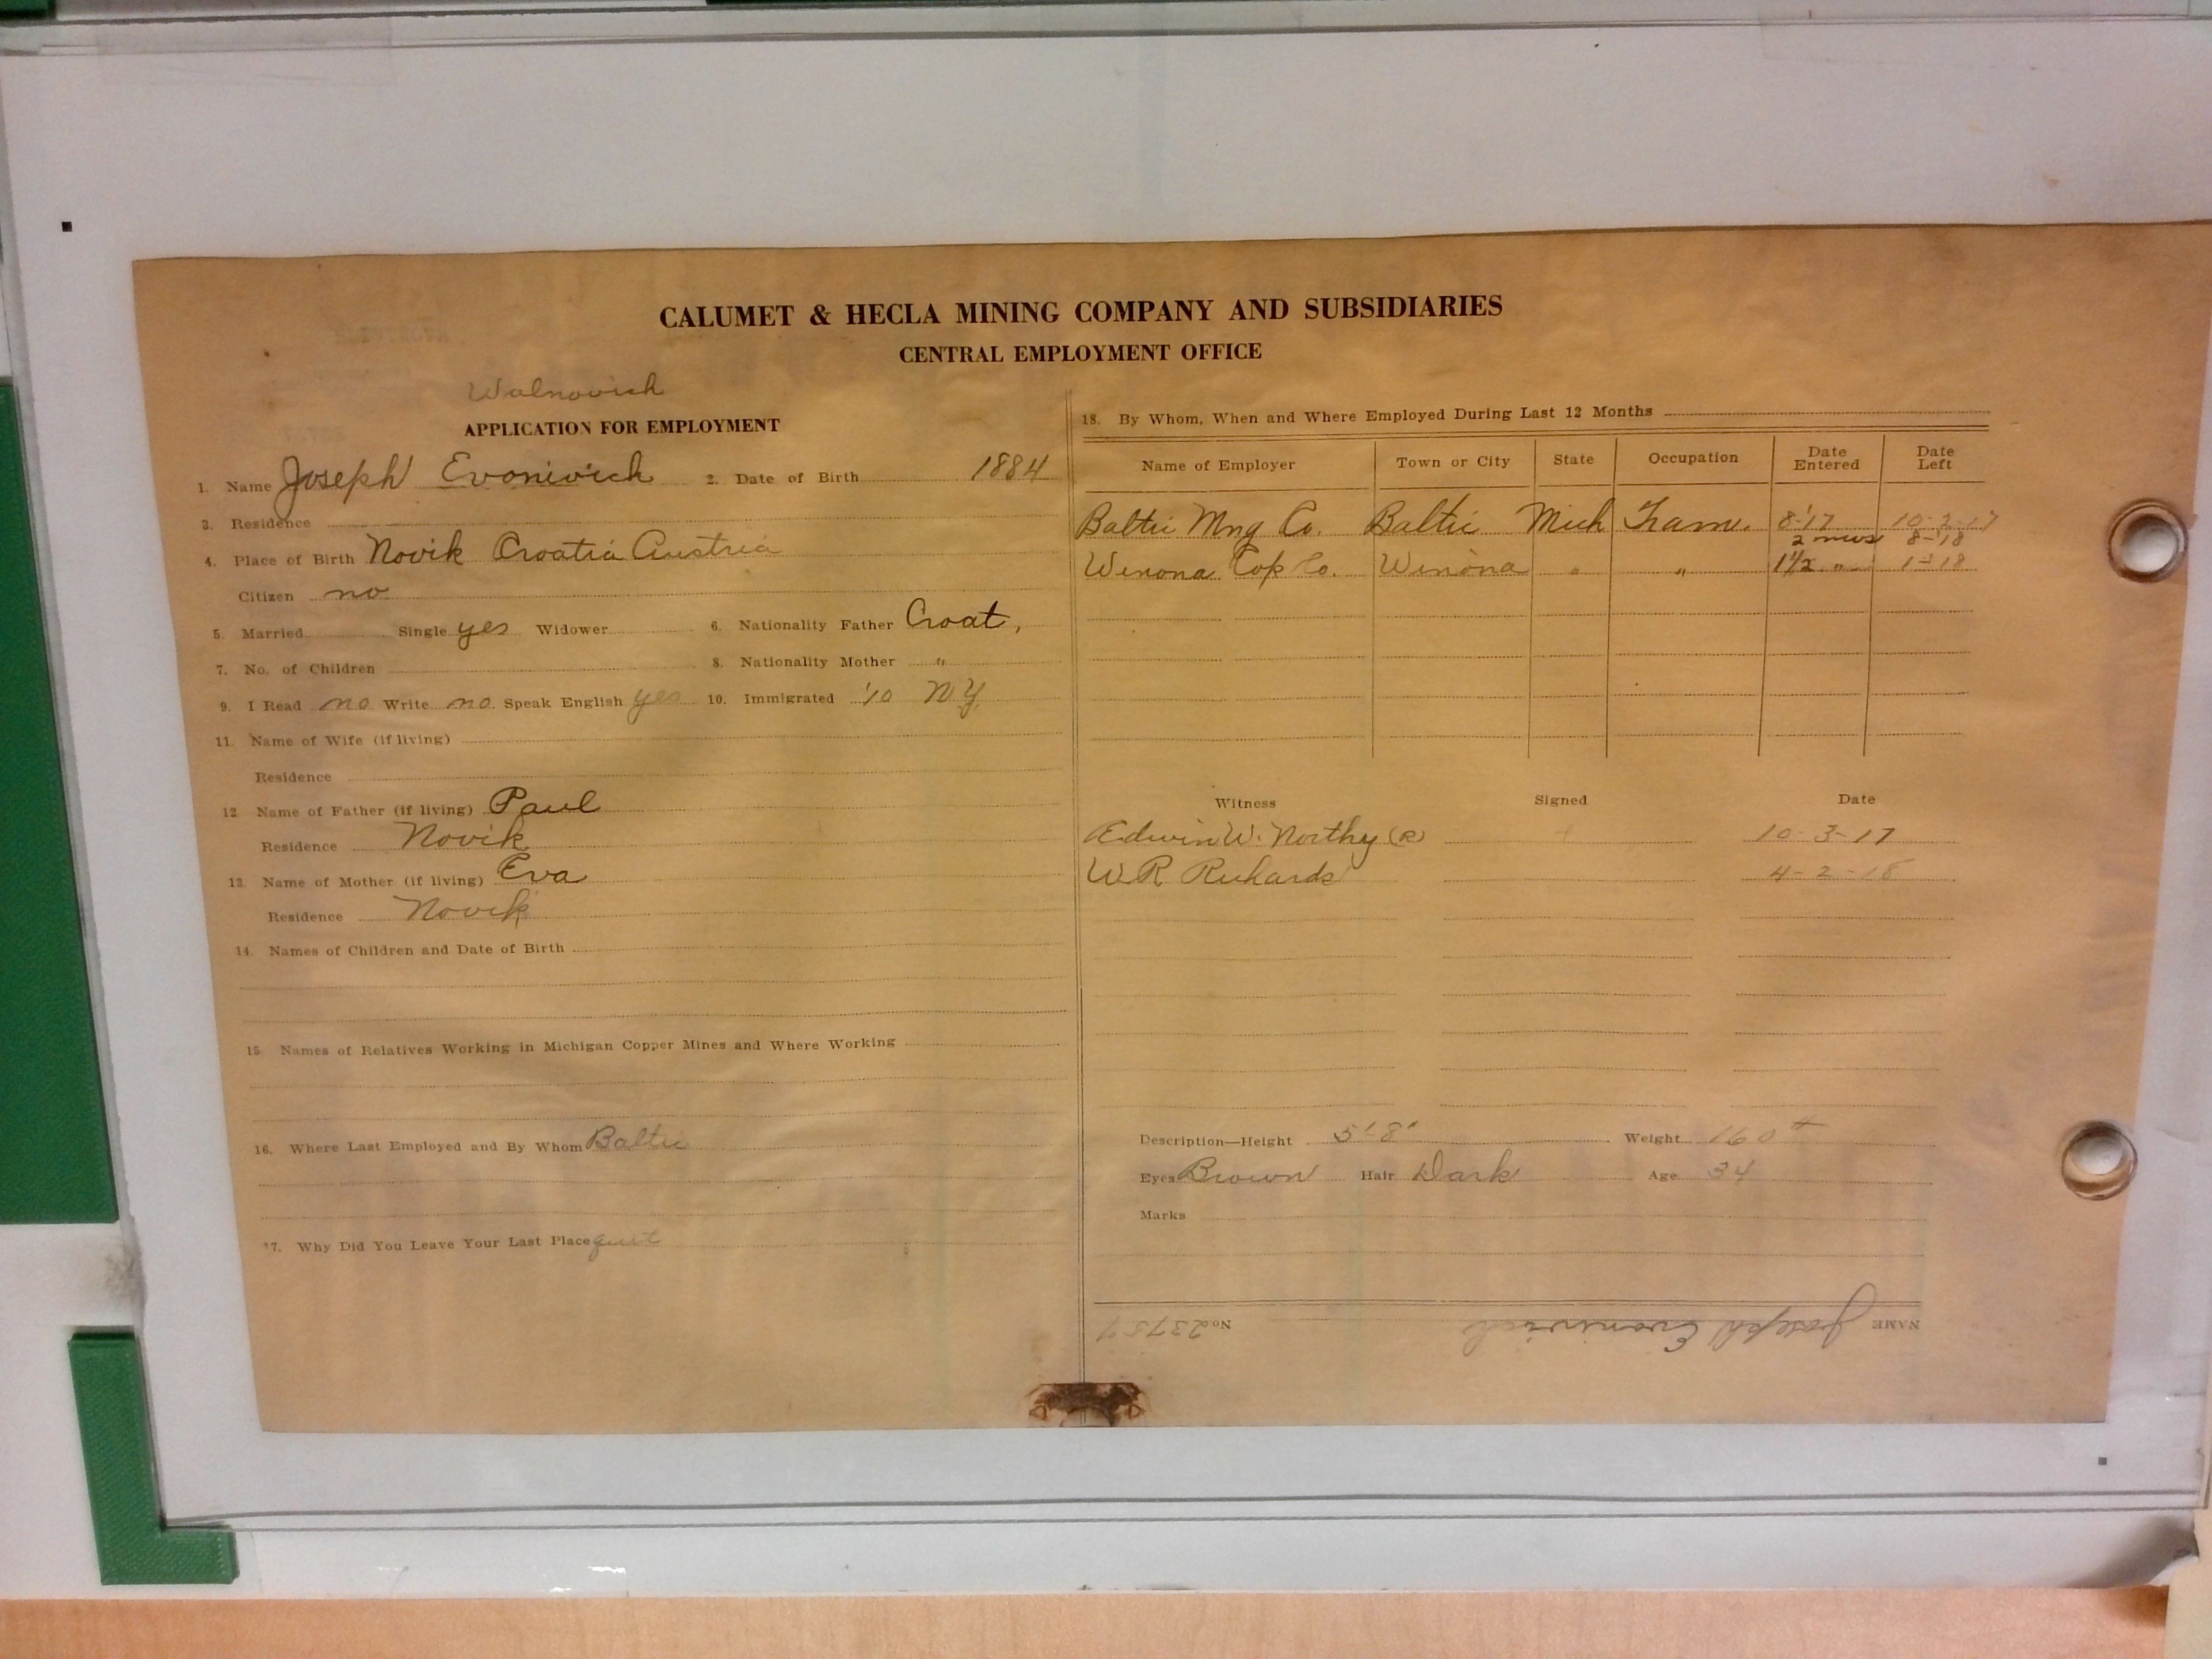 CALUMET & HECLA MINING COMPANY AND SUBSIDIARIES
CENTRAL EMPLOYMENT OFFICE
Walnovich
APPLICATION FOR EMPLOYMENT
1. Name Joseph Evonivich 2. Date of Birth 1884
3. Residence
4. Place of Birth Novik Croatia Austria
Citizen no
5. Married Single yes Widower 6. Nationality Father Croat,
7. No. of Children 8. Nationality Mother "
9. I Read no Write no Speak English yes 10. Immigrated '10 N.Y.
11. Name of Wife (if living)
Residence
12 Name of Father (if living) Paul
Residence Novik
13. Name of Mother (if living) Eva
Residence Novik
14. Names of Children and Date of Birth
15. Names of Relatives Working in Michigan Copper Mines and Where Working
16. Where Last Employed and By Whom Baltic
17. Why Did You Leave Your Last Place quit
18. By Whom, When and Where Employed During Last 12 Months
Name of Employer Town or City State Occupation Date Entered Date Left
Baltic Mng Co. Baltic Mich Tram. 8-'17 10-2-17
2 mos 8-'18
Winona Cop Co. Winona " " 1 1/2 " 1-'18
Witness Signed Date
Edwin W. Northy (R) + 10-3-17
W R Richards 4-2-18
Description—Height 5'-8" Weight 160#
Eyes Brown Hair Dark Age 34
Marks
NAME Joseph Evonivich No. 23757